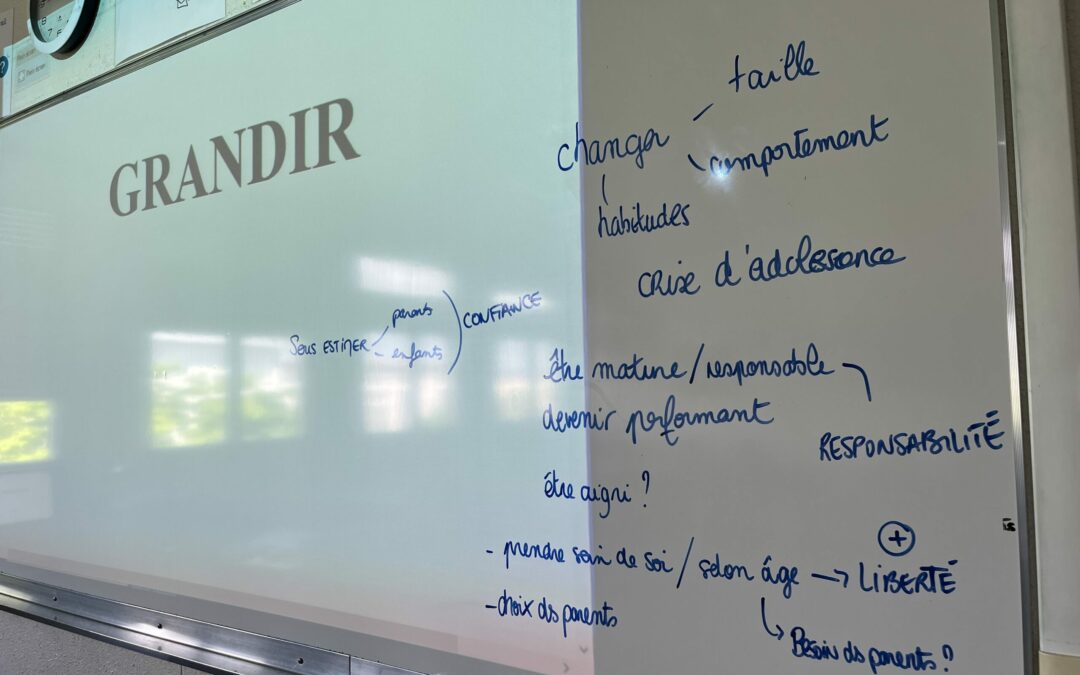 GRANDIR
taille
changer
comportement
habitudes
crise d'adolessence
Sous ESTIMER
parents
enfants
CONFIANCE
être mature/responsable
devenir performant
RESPONSABILITÉ
être aigri ?
- prendre soin de soi / selon âge → + LIBERTÉ
- choix ds parents
Besoin ds parents ?